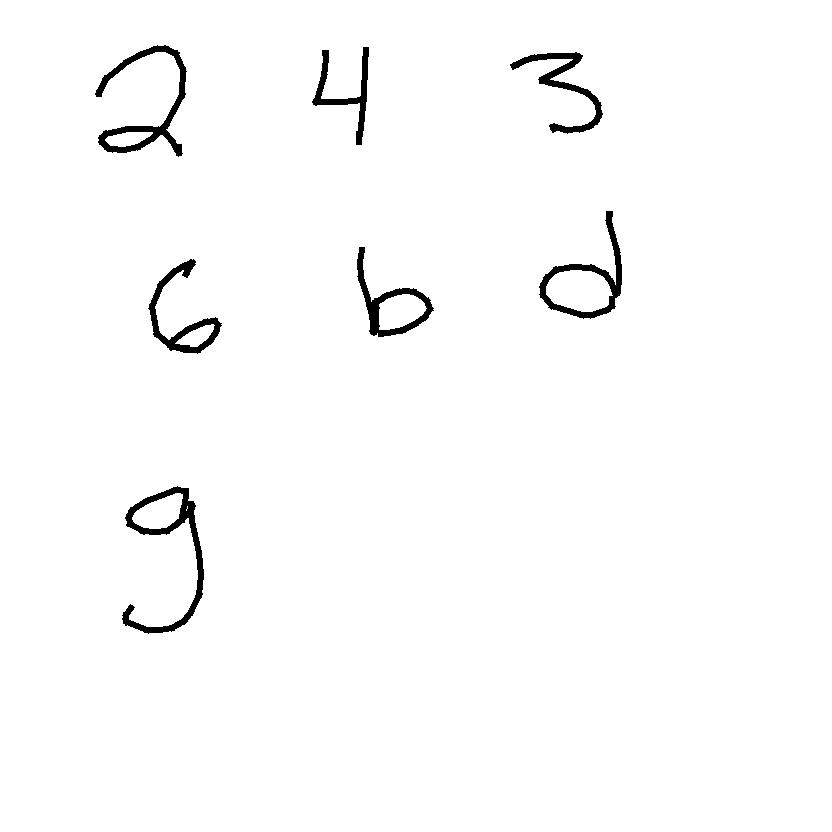 2 4 3
6 b d
g